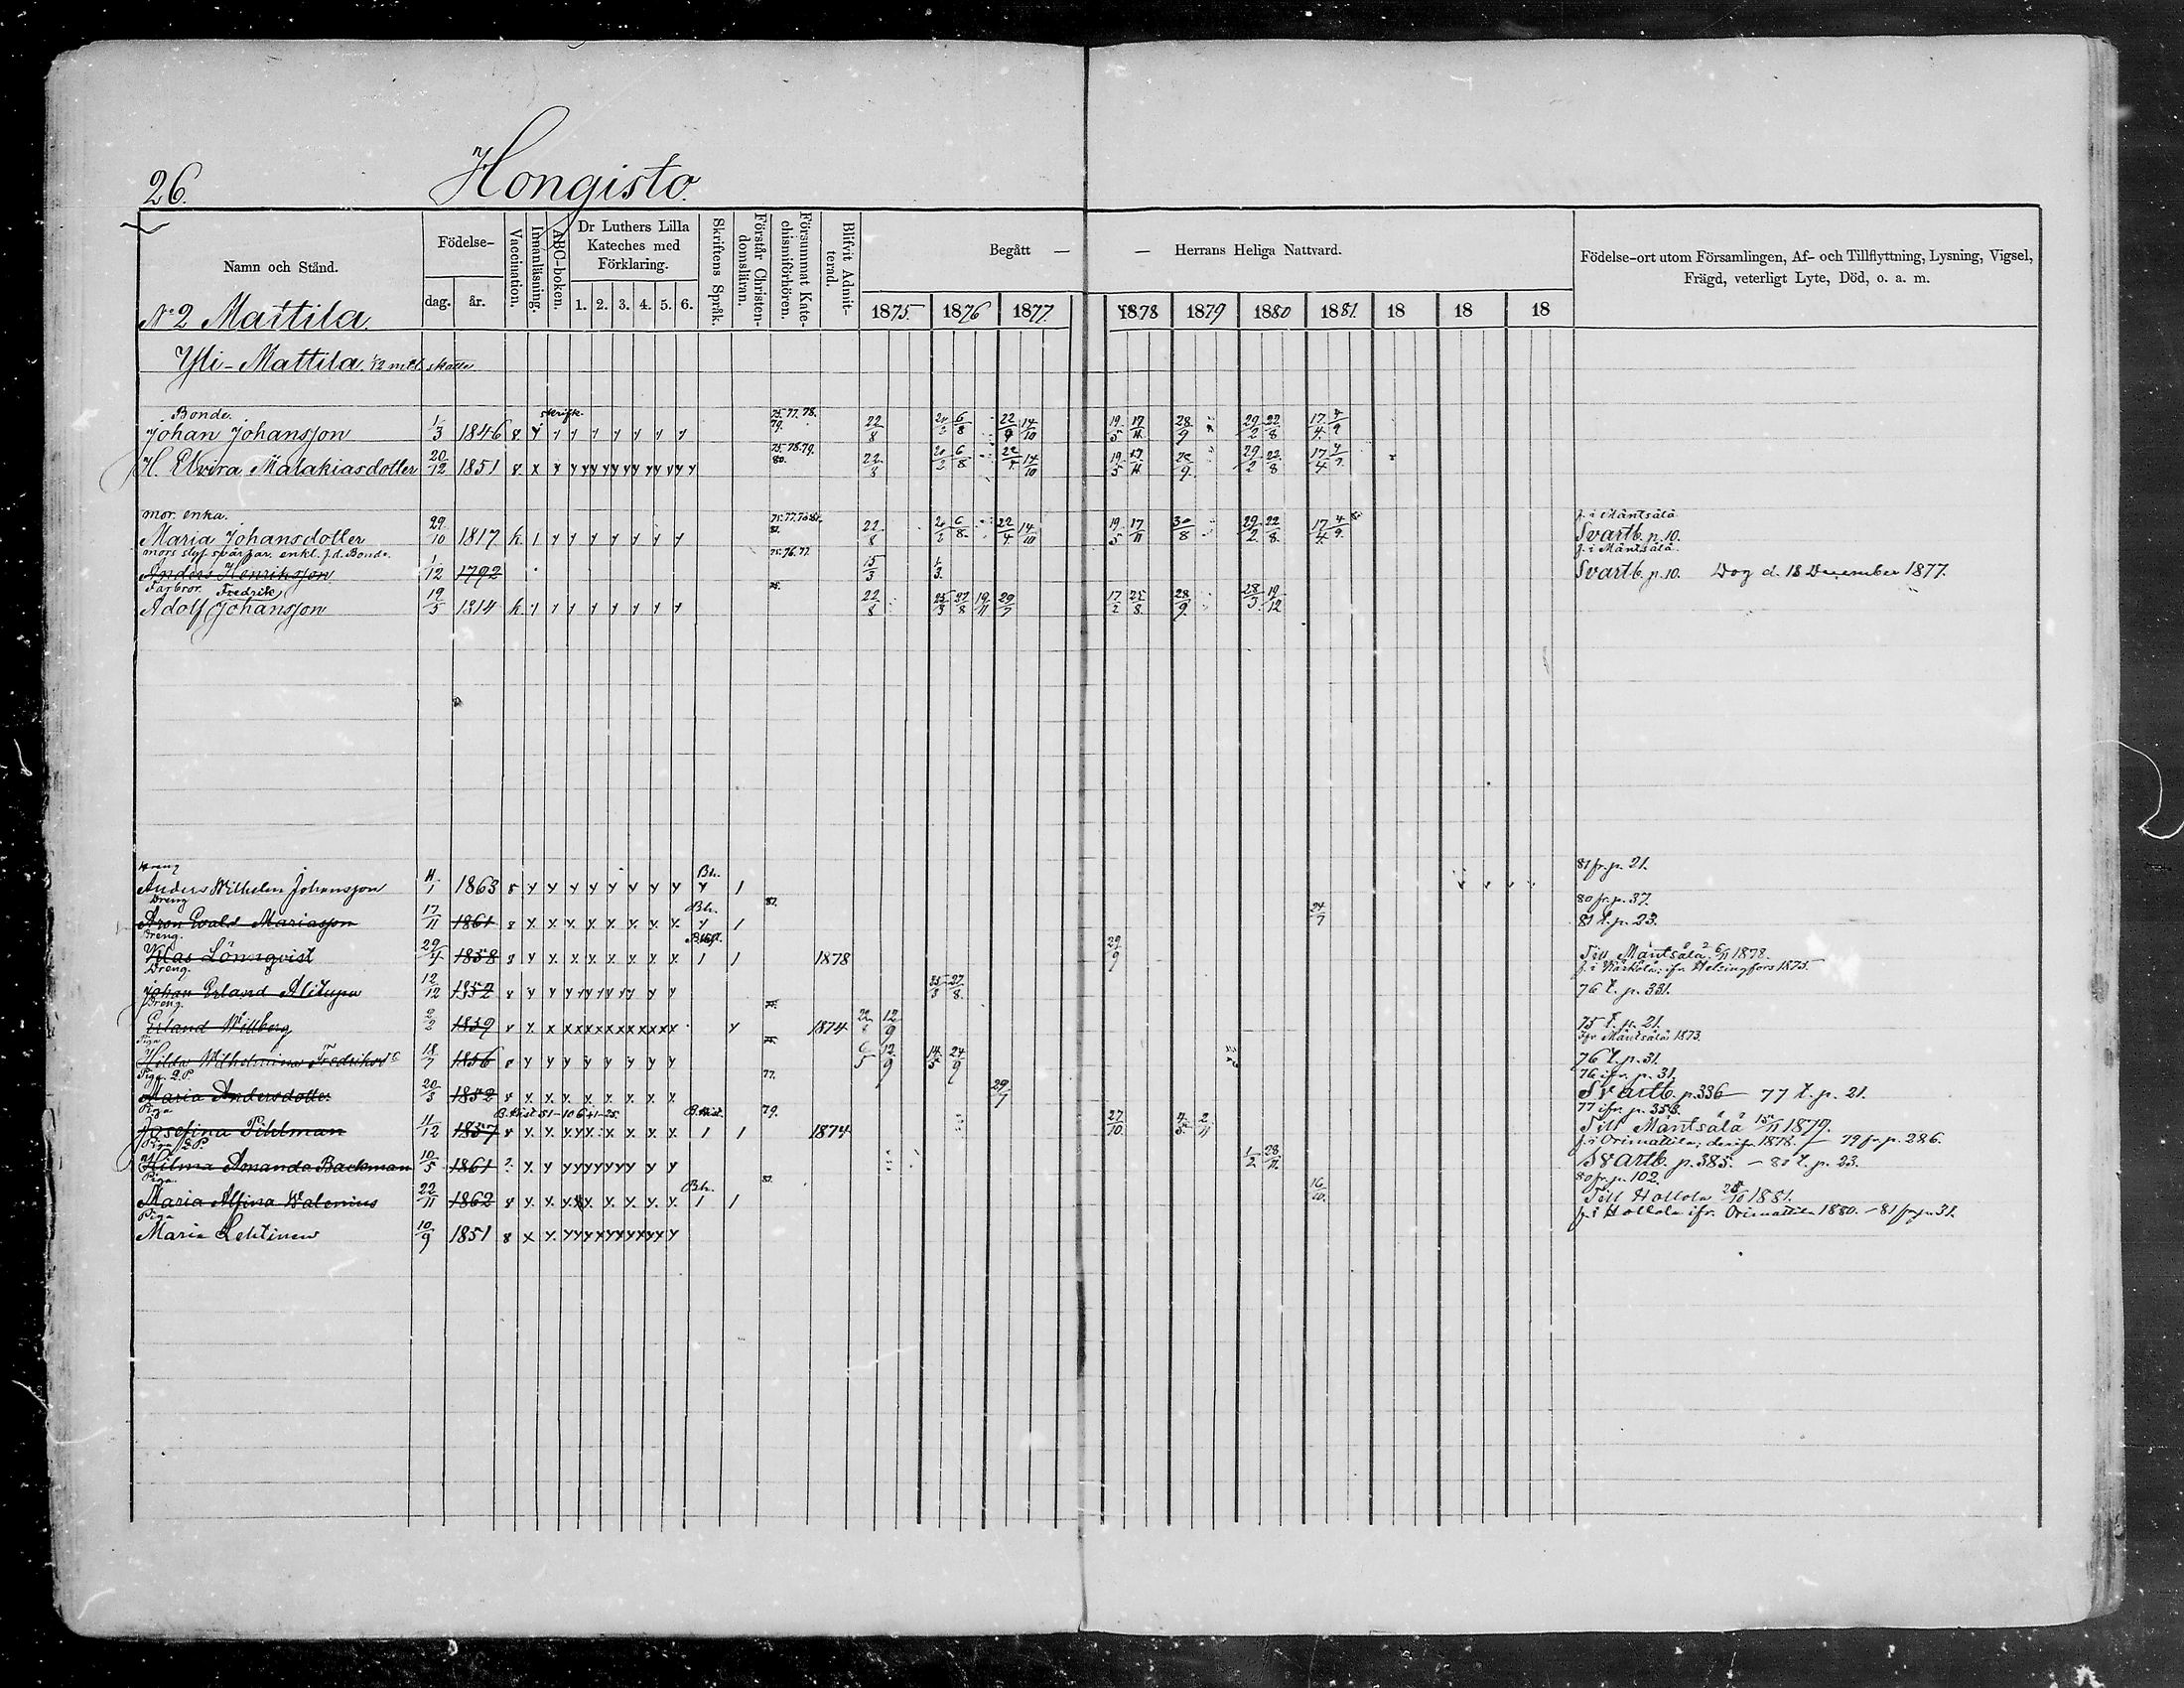 26.
Hongisto.
Namn och Stånd.
Födelse-
dag.
år.
Vaccination.
Innanläsning.
ABC-boken.
Dr Luthers Lilla
Kateches med
Förklaring.
1. 2. 3. 4. 5. 6.
Skriftens Språk.
Förstår Christen-
domsläran.
Försummat Kate-
chismiförhören.
Blifvit Admit-
terad.
Begått — — Herrans Heliga Nattvard.
1875. 1876 1877. 1878 1879 1880 1881. 18 18 18
Födelse-ort utom Församlingen, Af- och Tillflyttning, Lysning, Vigsel,
Frägd, veterligt Lyte, Död, o. a. m.
No 2 Mattila.
Yli-Mattila. 1/2 mtl. skatte
Bonde. skrifk. 75. 77. 78.
79.
Johan Johansson 1/3 1846 22/8 6/8 14/10 19/5 17/11 28/9 29/2 22/8 17/4 4/9
75. 78. 79.
80.
H. Elvira Malakiasdotter 20/12 1851 22/8 6/8 14/10 19/5 17/11 28/9 29/2 22/8 17/4
mor. enka. f. i Mäntsälä
Maria Johansdotter 29/10 1817 22/8 6/8 22/4 14/10 19/5 17/11 30/8 29/2 22/8 17/4 4/9 Svartb. p. 10.
mors styf svärfar. enkl. f.d. Bonde. 75. 76. 77. f. i Mäntsälä.
Anders Henriksson 1/12 1792 15/3 1/3 Svartb. p. 10. Dog d. 18 December 1877.
Farbror. Fredrik 75.
Adolf Johansson 19/5 1814 22/8 25/3 27/8 19/11 29/7 17/2 25/8 28/9 28/3 19/12
Dreng Bh. 81 fr. p. 21.
Anders Wilhelm Johansson 1863
Dreng Bh. 81. 80 fr. p. 37.
Aron Evald Mariasson 17/11 1861 24/7 81 t. p. 23.
Dreng.
Klas Lönnqvist 29/4 1858 1878 29/9 Till Mäntsälä 6/11 1878.
Dreng. f. i Kärkölä; ifr. Helsingfors 1875.
Johan Erland Alitupa 12/12 1852 25/3 27/8 76 t. p. 331.
Dreng. 75.
Erland Willberg 2/2 1859 1874 12/9 75 t. p. 21.
Piga 75. Ifr Mäntsälä 1873.
Hilda Wilhelmina Fredriksd:r 18/7 1856 6/5 12/9 14/5 24/9 76 t. p. 31.
Piga. 77. 76 ifr. p. 31.
Maria Andersdotter 20/3 1852 29/7 Svartb. p. 336 — 77 t. p. 21.
Piga 79. 77 ifr. p. 358.
Josefina Pihlman 4/12 1857 1874 27/10 4/5 2/11 Till Mäntsälä 15/11 1879.
Piga f. i Orimattila; derifr 1878. — 79 fr p. 286.
Hilma Amanda Backman 10/5 1861 1/2 28/11 Svartb. p. 385. — 80 t. p. 23.
Piga. Bh. 81. 80 fr. p. 102.
Maria Alfina Walenius 22/11 1862 16/10 Till Hollola 28/10 1881.
Piga f. i Hollola ifr. Orimattila 1880. — 81 fr p. 31.
Maria Lehtinen 10/9 1851